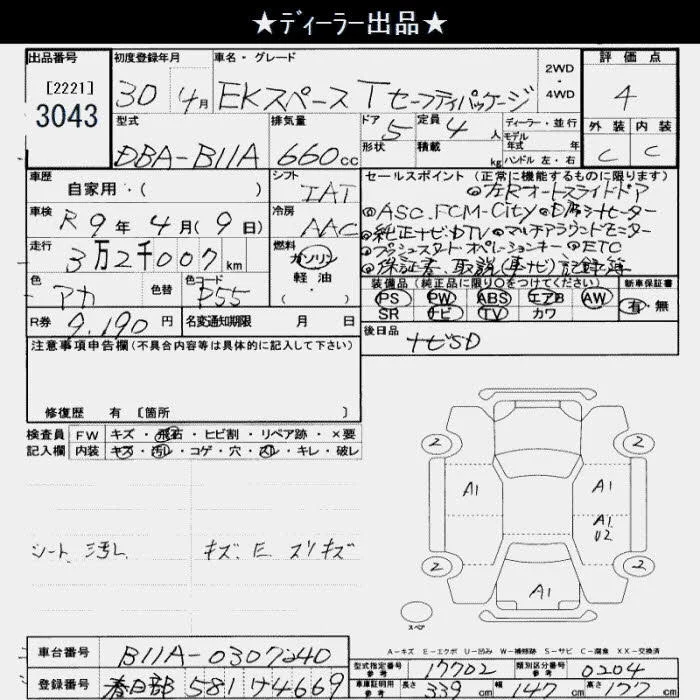 ★ディーラー出品★
出品番号 初度登録年月 車名・グレード 2WD・4WD 評価点
[2221]
3043 30 4月 EKスペース Tセーフティパッケージ 4
型式 排気量 ドア 5 定員 4人 ディーラー・並行 外装 内装
モデル年式 年
DBA-B11A 660cc 形状 積載 kg ハンドル 左・右 C C
車歴 シフト セールスポイント(正常に機能するものに限ります)
自家用・( ) IAT ◎左Rオートスライドドア
車検 冷房 ◎ASC.FCM-City ◎D席シートヒーター
R9年4月(9日) AAC ◎純正ナビDTV ◎マルチアラウンドモニター
走行 燃料 ◎プッシュスタートオペレーションキー ◎ETC
3万2千007km ガソリン ◎保証書、取説(車ナビ)記録簿
軽油
(・)
色 色替 色コード 装備品(純正品に限り○をつけてください) 新車保証書
アカ P55 PS PW ABS エアB AW 有・無
SR ナビ TV カワ
R券 9,190円 名変通知期限 月 日 後日品 ナビSD
注意事項申告欄(不具合内容等は具体的に記入して下さい)
修復歴 有 [箇所 ]
検査員 FW キズ・飛石・ヒビ割・リペア跡・×要
記入欄 内装 キズ・汚れ・コゲ・穴・スレ・キレ・破レ
2 2
A1 A1
A1
U2
シート 汚れ キズ、E スリキズ
2 2
A1
スペア
A-キズ E-エクボ U-凹み W-補修跡 S-サビ C-腐食 XX-交換済
車台番号 B11A-0307240 型式指定番号 参考 17702 類別区分番号 参考 0204
登録番号 春日部 581 け 4669 車庫証明用 参考 長さ 339cm 幅 147cm 高さ 177cm